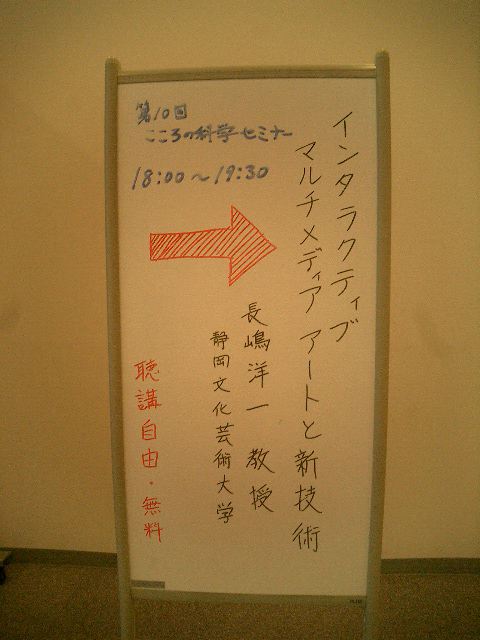 第10回
こころの科学セミナー
18:00～19:30
インタラクティブ
マルチメディア アートと新技術
長嶋洋一 教授
静岡文化芸術大学
聴講自由・無料